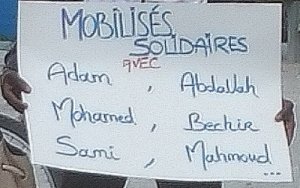 MOBILISÉS
SOLIDAIRES
AVEC
Adam , Abdallah
Mohamed , Bechir
Sami , Mahmoud ...